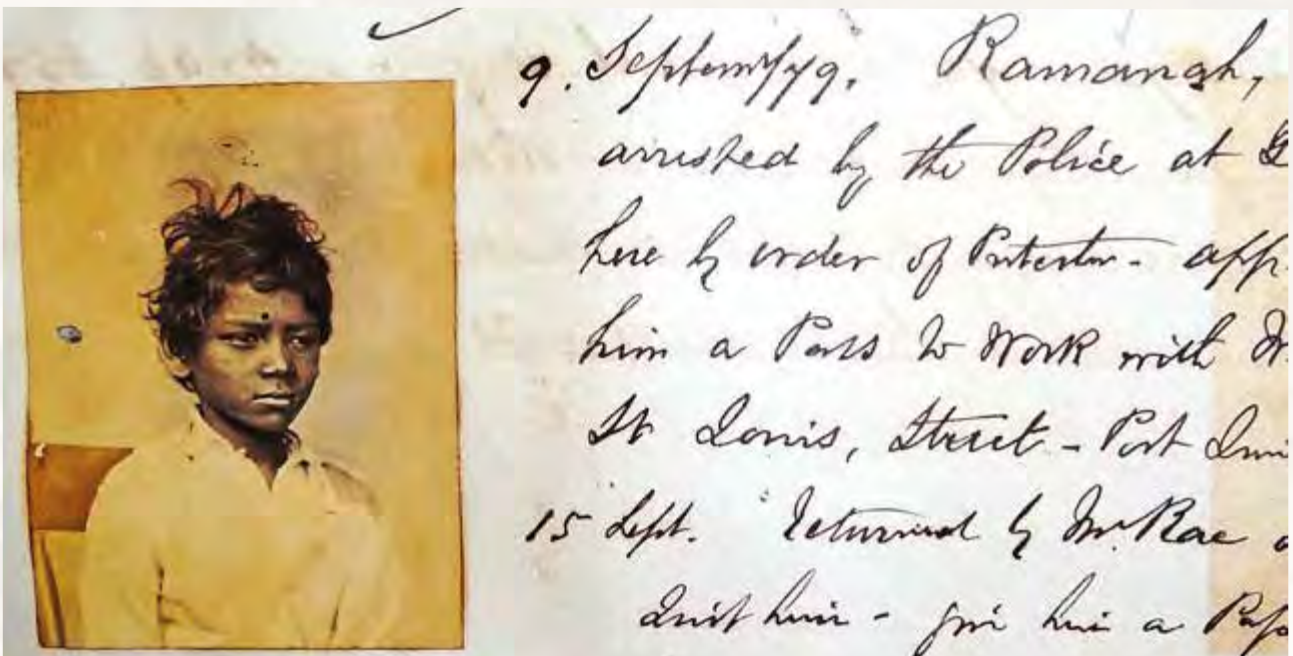 9. Septem/79. Ramanah,
arrested by the Police at G
here by order of Protector - app.
him a Pass to Work with M
St Louis, Street - Port Loui
15 Sept. returned by Mr. Rae
Quit him - giv him a Pass